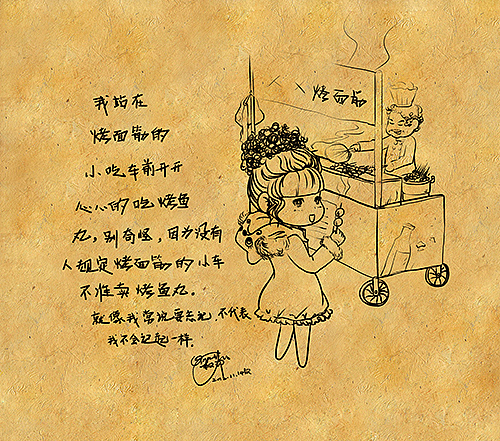 ××烤面筋
我站在
烤面筋的
小吃车前开开
心心的吃烤鱼
丸，别奇怪，因为没有
人规定烤面筋的小车
不准卖烤鱼丸。
就像我常说要忘记，不代表
我不会记起一样。